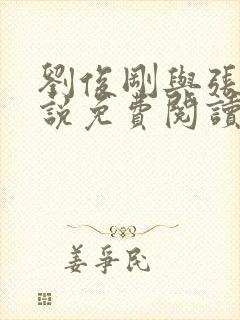 劉俊剛與張
說免費閱讀
姜爭民